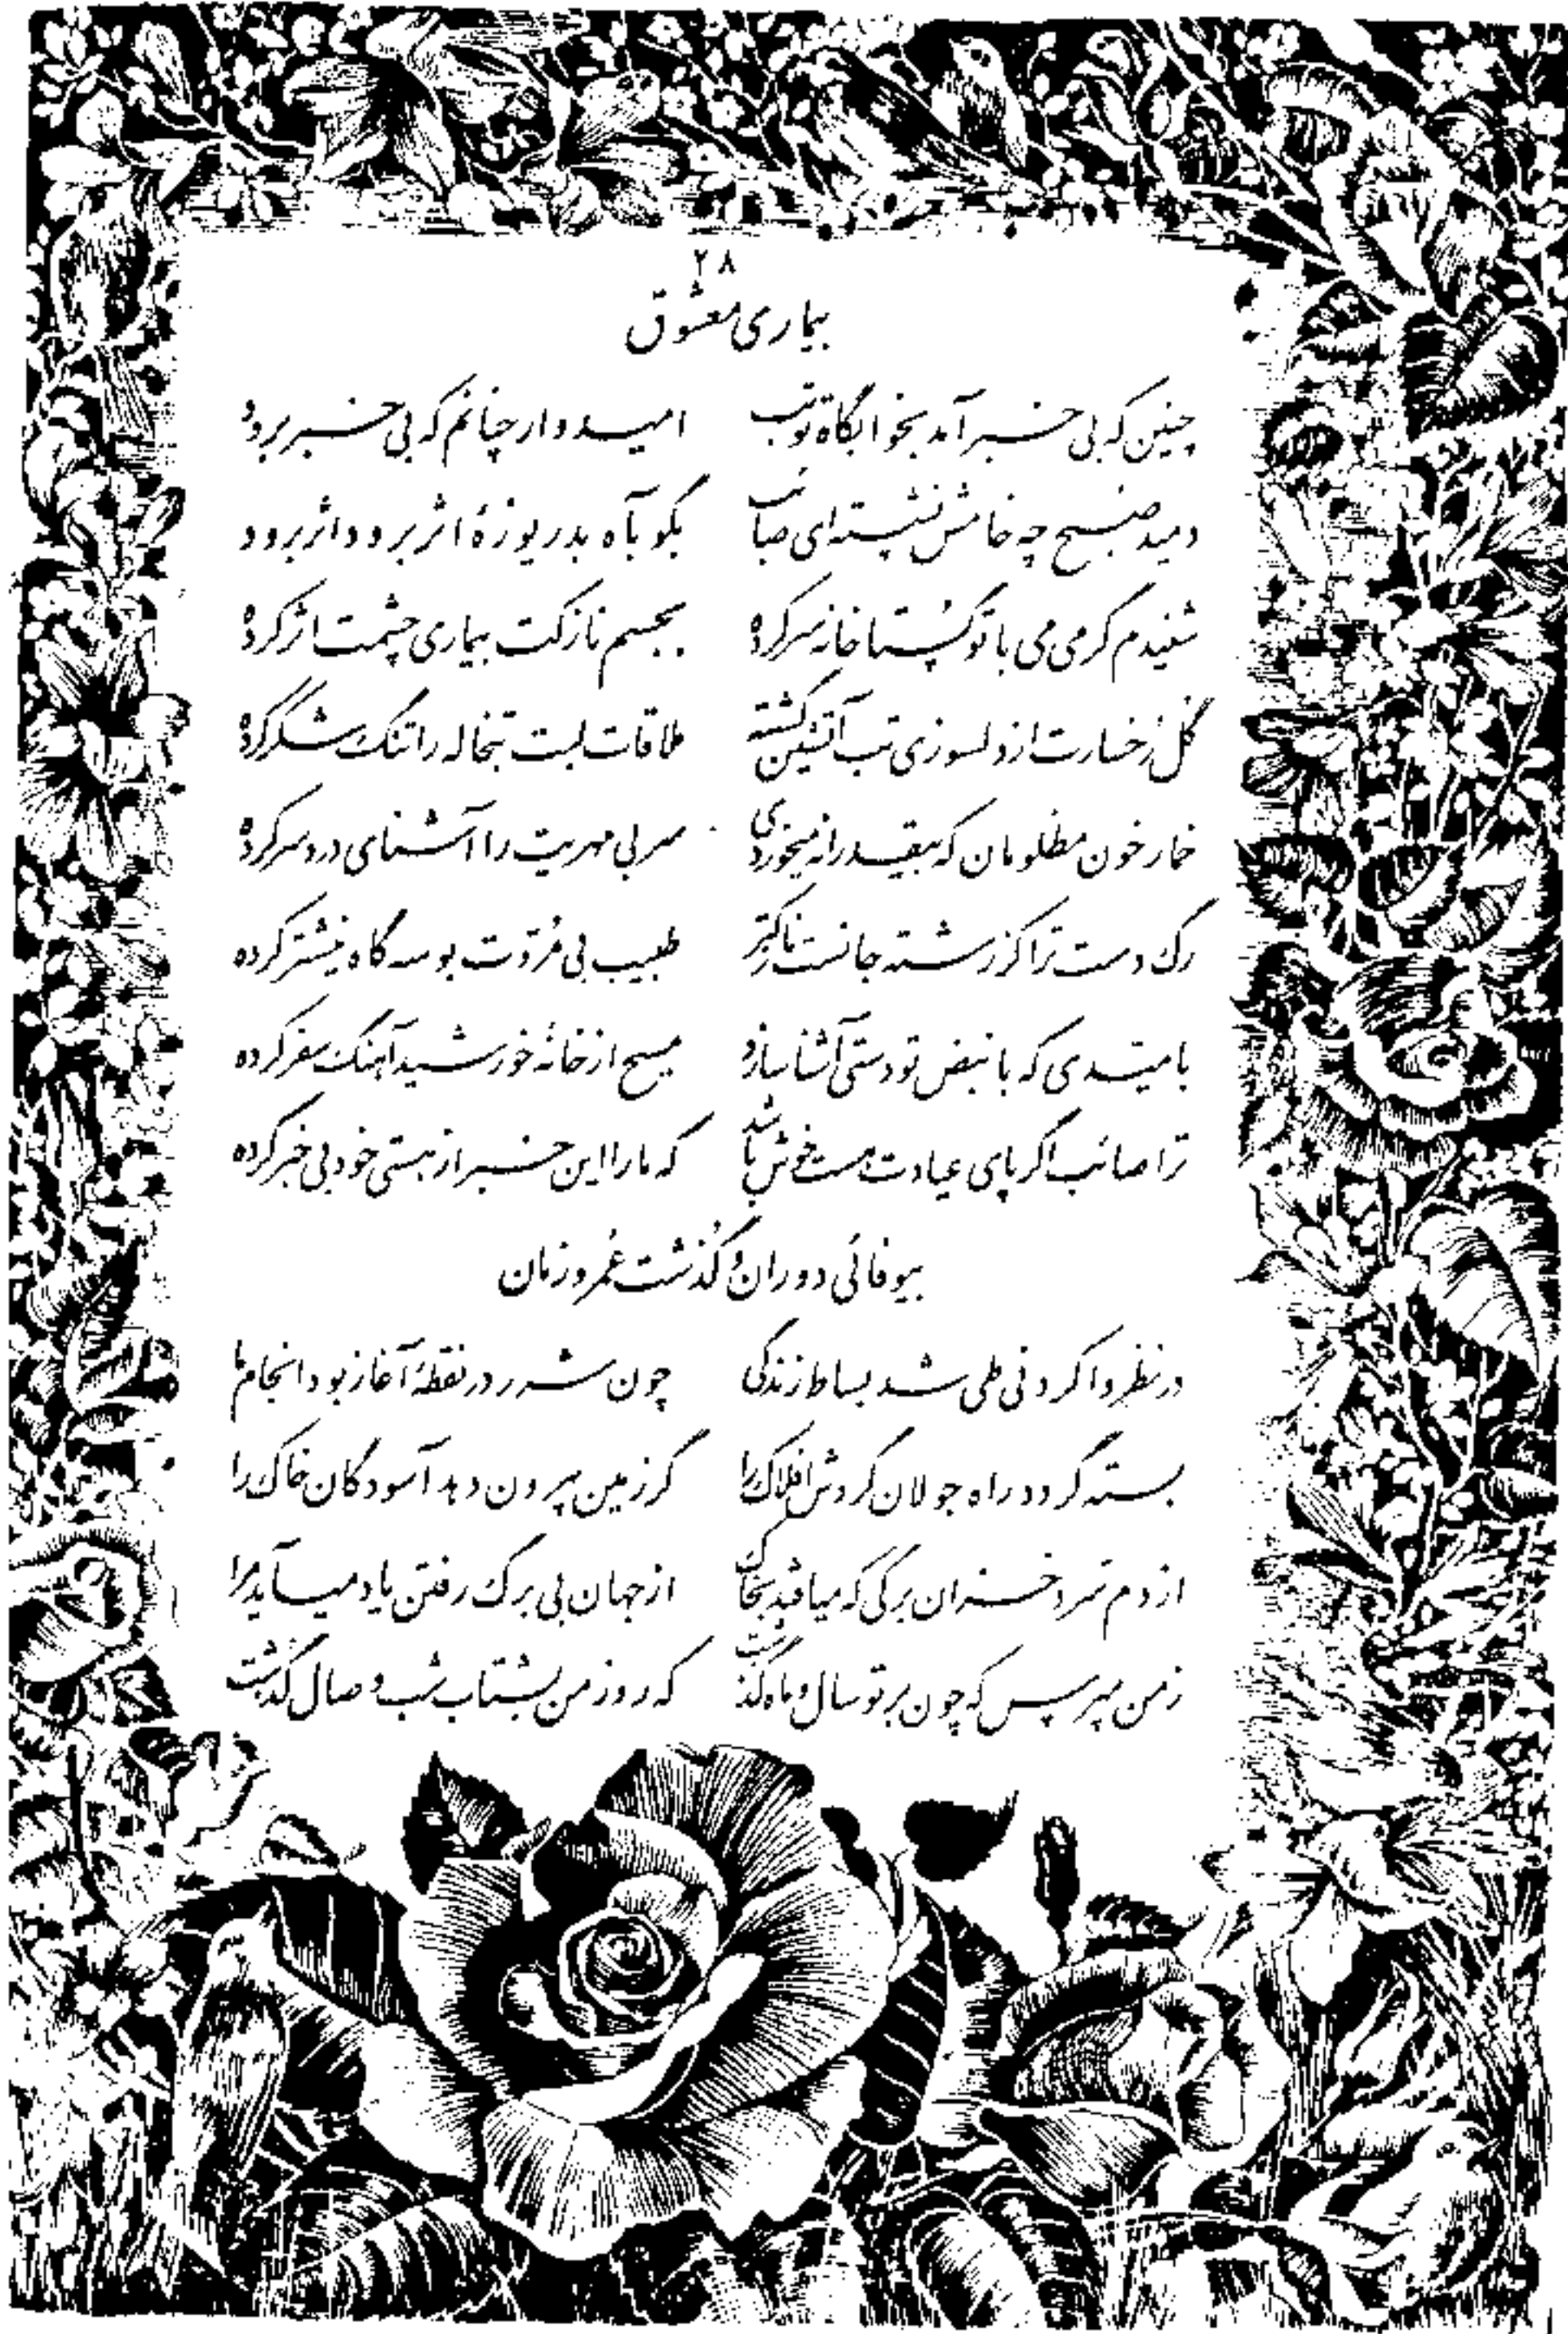 ۲۸
بیماری معشوق
چنین که بی خبر آمد بخوابگاه تو تب امیدوار چنانم که بی خبر برود
دمید صبح چه خامش نشسته‌ای صائب بگو بآه بدریوزهٔ اثر برود اثر برود
شنیدم گرمی می با تو گستاخانه سر کرده بجسم نازکت بیماری چشمت اثر کرده
گل رخسارت از دلسوزی تب آتشین گشته ملاقات لبت تبخاله را تنگ شکر کرده
خمار خون مظلومان که بیقدرانه میخوردی سر بی مهریت را آشنای دردسر کرده
رگ دست ترا کز رشته جانست نازکتر طبیب بی مُروّت بوسه گاه نیشتر کرده
بامیّدی که با نبض تو دستی آشنا سازد مسیح از خانهٔ خورشید آهنگ سفر کرده
ترا صائب اگر پای عیادت هست خوش باشد که ما را این خبر از هستی خود بی خبر کرده
بیوفائی دوران و گذشت عُمر و زمان
در نظر واکردنی طی شد بساط زندگی چون شرر در نقطهٔ آغاز بود انجام ما
بسته گردد راه جولان گردش افلاک را گر زمین بیرون دهد آسودگان خاک را
از دم سرد خزان برگی که میافتد بخاک از جهان بی برگ رفتن یاد میآید مرا
ز من مپرس که چون بر تو سال و ماه گذشت که روز من بشتاب شب وصال گذشت